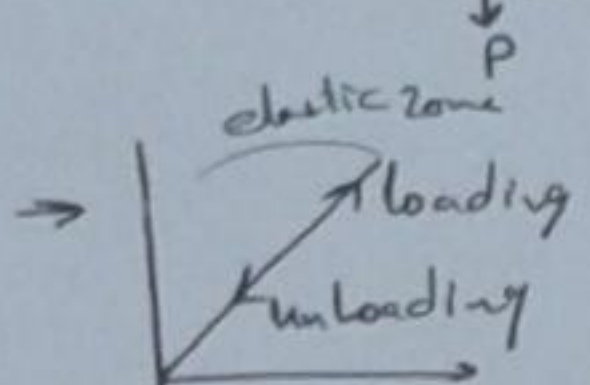 P
elastic zone
loading
unloading